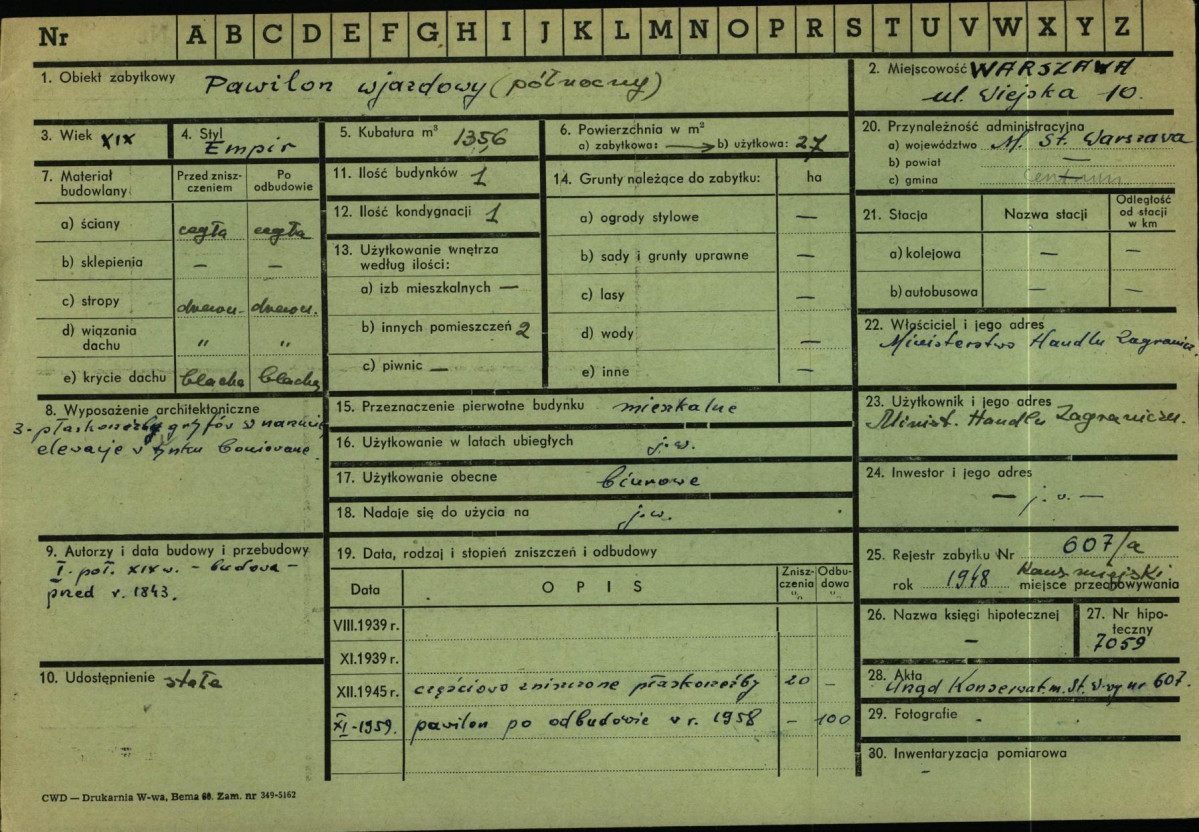 Nr A B C D E F G H I J K L M N O P R S T U V W X Y Z
1. Obiekt zabytkowy Pawilon wjazdowy (północny)
2. Miejscowość WARSZAWA
ul. Wiejska 10.
3. Wiek XIX
4. Styl
Empir
5. Kubatura m³ 1356
6. Powierzchnia w m²
a) zabytkowa: → b) użytkowa: 27
7. Materiał budowlany
Przed znisz-
czeniem
Po
odbudowie
a) ściany cegła cegła
b) sklepienia — —
c) stropy drewn. drewn.
d) wiązania
dachu " "
e) krycie dachu blacha blacha
8. Wyposażenie architektoniczne
3 - płaskorzeźby gryfów w
elewacje w tynku boniowane.
9. Autorzy i data budowy i przebudowy
I. poł. XIX w. - budowa -
przed r. 1843.
10. Udostępnienie stałe
11. Ilość budynków 1
12. Ilość kondygnacji 1
13. Użytkowanie wnętrza
według ilości:
a) izb mieszkalnych —
b) innych pomieszczeń 2
c) piwnic —
14. Grunty należące do zabytku: ha
a) ogrody stylowe —
b) sady i grunty uprawne —
c) lasy —
d) wody —
e) inne —
15. Przeznaczenie pierwotne budynku mieszkalne
16. Użytkowanie w latach ubiegłych j.w.
17. Użytkowanie obecne biurowe
18. Nadaje się do użycia na j.w.
19. Data, rodzaj i stopień zniszczeń i odbudowy
Data OPIS
Znisz-
czenia
%
Odbu-
dowa
%
VIII.1939 r.
XI.1939 r.
XII.1945 r. częściowo zniszczone płaskorzeźby 20 —
XI-1959. pawilon po odbudowie w r. 1958 — 100
20. Przynależność administracyjna
a) województwo M. St. Warszawa
b) powiat —
c) gmina Centrum
21. Stacja Nazwa stacji
Odległość
od stacji
w km
a) kolejowa — —
b) autobusowa — —
22. Właściciel i jego adres
Ministerstwo Handlu Zagranicz.
23. Użytkownik i jego adres
Minist. Handlu Zagraniczn.
24. Inwestor i jego adres
— j. w. —
25. Rejestr zabytku Nr 607/a
rok 1948 Kons. miejski
miejsce przechowywania
26. Nazwa księgi hipotecznej
—
27. Nr hipo-
teczny
7059
28. Akta
Urząd Konserwat. m. St. W-wy nr 607.
29. Fotografie -
30. Inwentaryzacja pomiarowa
-
CWD — Drukarnia W-wa, Bema 60. Zam. nr 349-5162